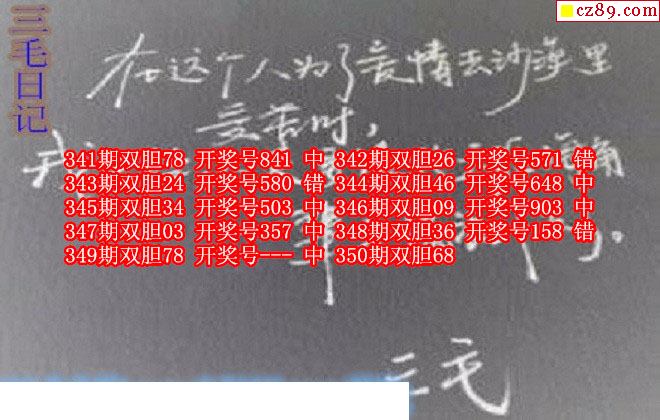 cz89.com
三毛日记
在这个人为了爱情去沙漠里
受苦时,
341期双胆78 开奖号841 中 342期双胆26 开奖号571 错
343期双胆24 开奖号580 错 344期双胆46 开奖号648 中
345期双胆34 开奖号503 中 346期双胆09 开奖号903 中
347期双胆03 开奖号357 中 348期双胆36 开奖号158 错
349期双胆78 开奖号--- 中 350期双胆68
三毛